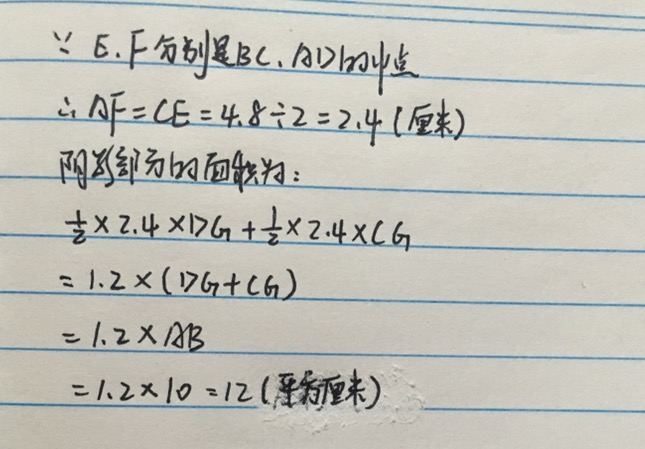 ∵ E、F分别是BC、AD的中点
∴ AF=CE=4.8÷2=2.4(厘米)
阴影部分的面积为:
½×2.4×DG+½×2.4×CG
=1.2×(DG+CG)
=1.2×AB
=1.2×10=12(平方厘米)